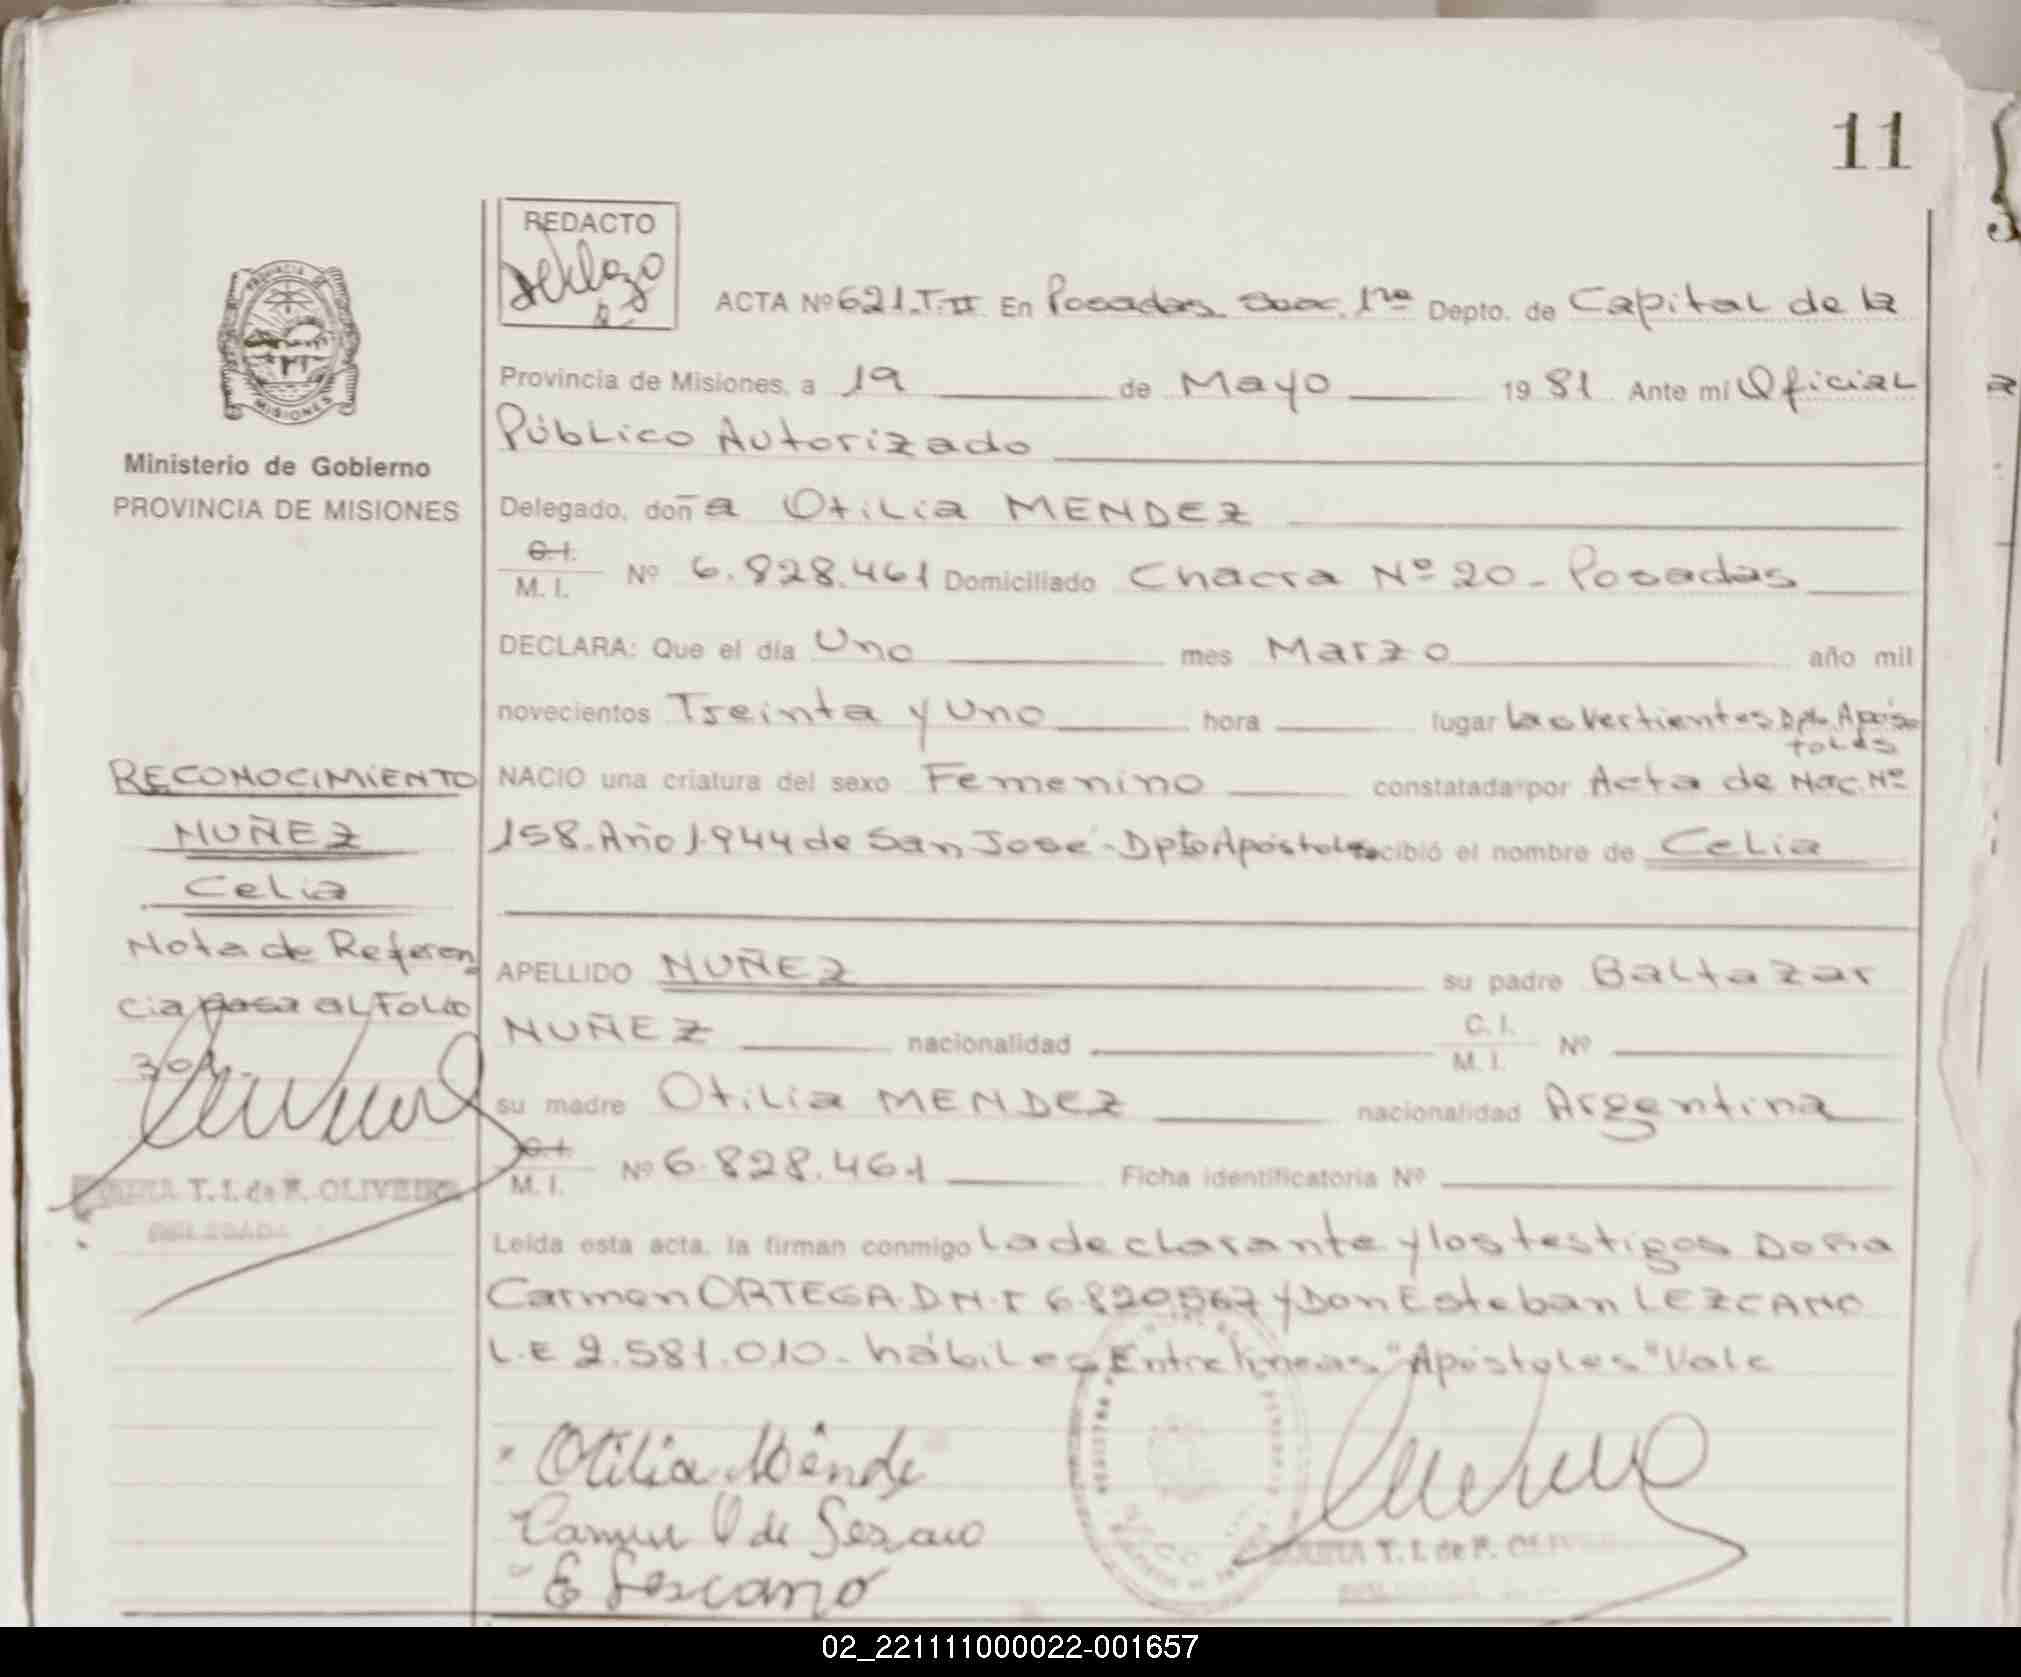 11
REDACTO
ACTA Nº 621.T.II En Posadas Secc. 1ra Depto. de Capital de la
Provincia de Misiones, a 19 de Mayo 1981 Ante mi Oficial
Público Autorizado
PROVINCIA DE
MISIONES
Ministerio de Gobierno
PROVINCIA DE MISIONES
Delegado, doña Otilia MENDEZ
C.I.
M. I. Nº 6.828.461 Domiciliado Chacra Nº 20 - Posadas
DECLARA: Que el día Uno mes Marzo año mil
novecientos Treinta y Uno hora lugar Las Vertientes Dpto. Após-
toles
NACIO una criatura del sexo Femenino constatada por Acta de Nac. Nº
158. Año 1.944 de San José - Dpto Apóstoles recibió el nombre de Celia
RECONOCIMIENTO
NUÑEZ
Celia
Nota de Referen
cia pasa al Folio
APELLIDO NUÑEZ su padre Baltazar
NUÑEZ nacionalidad C. I.
M. I. Nº
su madre Otilia MENDEZ nacionalidad Argentina
C.I.
M. I. Nº 6.828.461 Ficha identificatoria Nº
T. I. de F. OLIVEIRA
DELEGADA
Leída esta acta, la firman conmigo La declarante y los testigos Doña
Carmen ORTEGA. D.N.I 6.820.567 y Don Esteban LEZCANO
L.E 2.581.010 - hábiles Entrelíneas "Apóstoles" Vale
Otilia Méndez
Carmen O de Lezcano
E Lescano
T. I. de F. OLIVEIRA
02_221111000022-001657